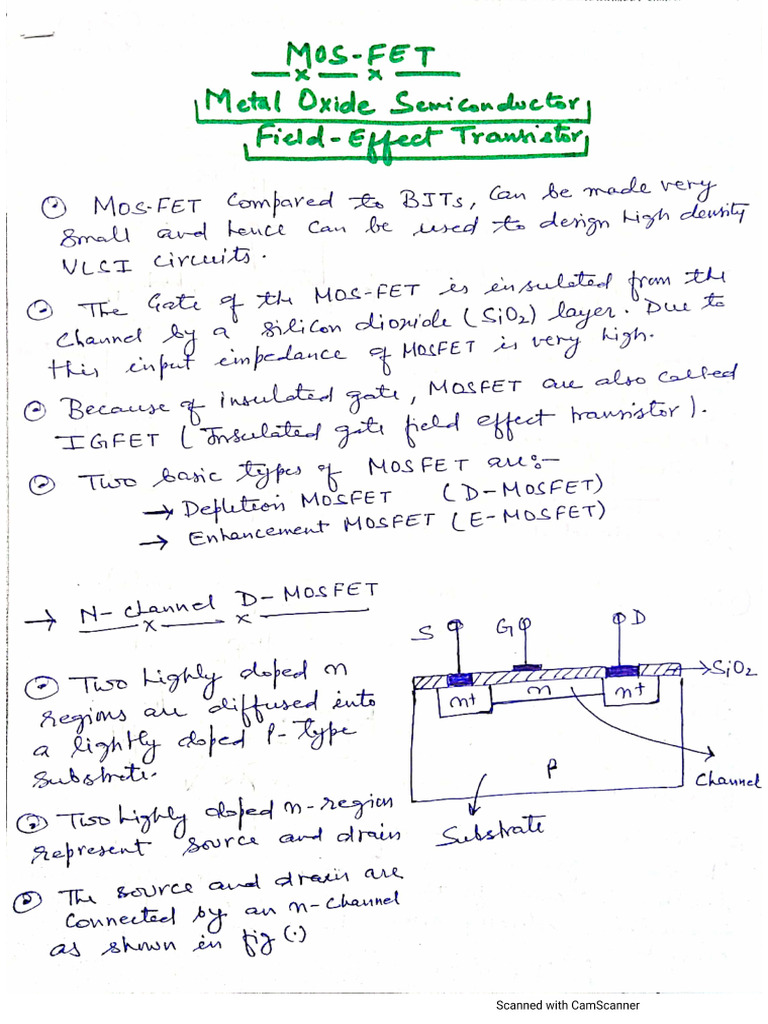 MOS-FET
Metal Oxide Semiconductor
Field-Effect Transistor
MOS-FET compared to BJTs, can be made very
small and hence can be used to design high density
VLSI circuits.
The Gate of the MOS-FET is insulated from the
channel by a silicon dioxide (SiO2) layer. Due to
this input impedance of MOSFET is very high.
Because of insulated gate, MOSFET are also called
IGFET (Insulated gate field effect transistor).
Two basic types of MOSFET are:-
→ Depletion MOSFET (D-MOSFET)
→ Enhancement MOSFET (E-MOSFET)
→ N-channel D-MOSFET
Two highly doped n
regions are diffused into
a lightly doped P-type
substrate.
Two highly doped n-region
represent source and drain
The source and drain are
connected by an n-channel
as shown in fig (.)
S G D
SiO2
n+ n n+
P
Channel
Substrate
Scanned with CamScanner